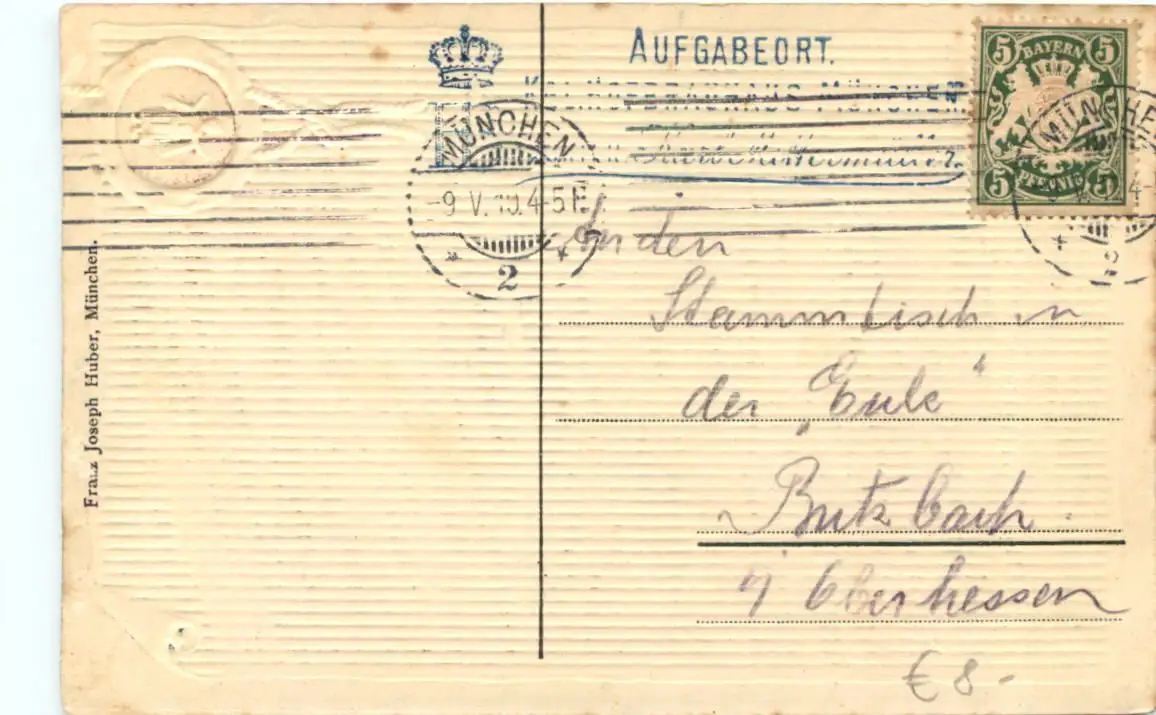 AUFGABEORT.
KGL. HOFBRÄUHAUS MÜNCHEN
BAYERN
5 5
5 PFENNIG 5
MÜNCHEN
-9 V. 10. 4-5 N.
2
MÜNCHEN
An den
Stammtisch in
der „Eule“
Butzbach.
i/ Oberhessen
€ 8.-
Franz Joseph Huber, München.